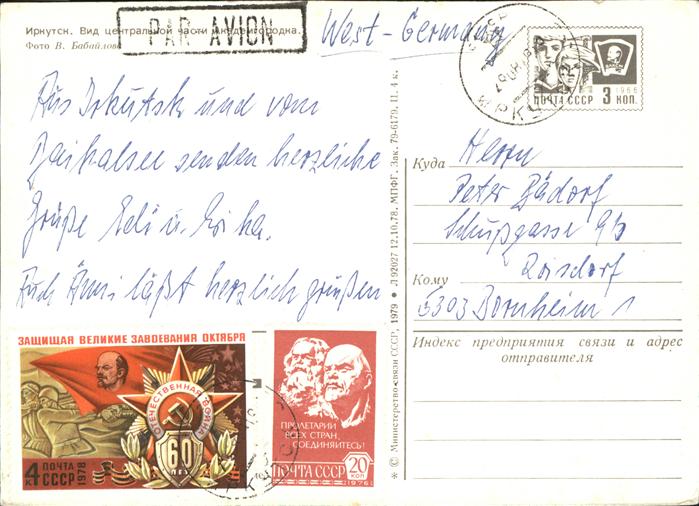 Иркутск. Вид центральной части Академгородка.
Фото В. Бабайлова
PAR AVION
West-Germany
СССР
ИРКУТСК
1966
ПОЧТА СССР 3 КОП.
Aus Irkutsk und vom
Baikalsee senden herzliche
Grüße Edi u. Erika.
Auch Änni läßt herzlich grüßen
Куда
Herrn
Peter Bädorf
Schußgasse 9b
Кому
Roisdorf
5303 Bornheim 1
Индекс предприятия связи и адрес
отправителя
* © Министерство связи СССР, 1979 • Л 92027 12.10.78. МПФГ. Зак. 79-6179. Ц. 4 к.
ЗАЩИЩАЯ ВЕЛИКИЕ ЗАВОЕВАНИЯ ОКТЯБРЯ
ОТЕЧЕСТВЕННАЯ ВОЙНА
60
ЛЕТ
4К ПОЧТА
СССР
1978
ПРОЛЕТАРИИ
ВСЕХ СТРАН,
СОЕДИНЯЙТЕСЬ!
ПОЧТА СССР 20
КОП
1976